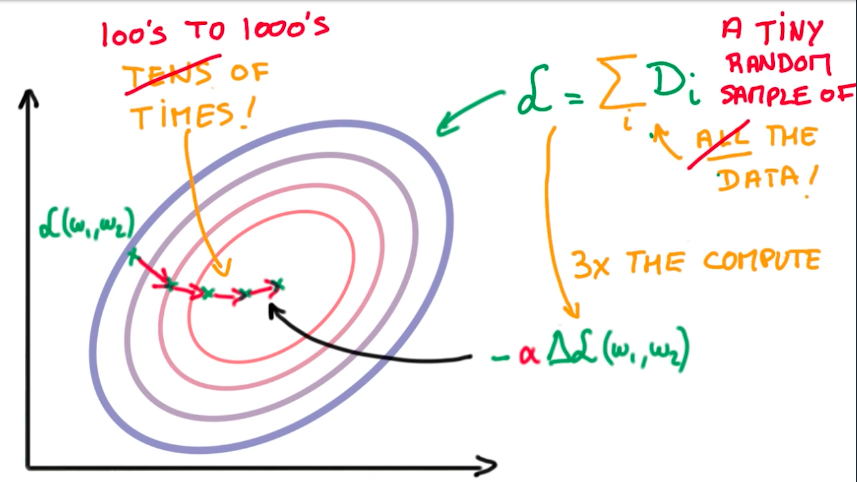 100's TO 1000's
TENS OF
TIMES!
ℒ(ω₁,ω₂)
ℒ = Σ Dᵢ
i
A TINY
RANDOM
SAMPLE OF
ALL THE
DATA!
3x THE COMPUTE
-α Δℒ(ω₁,ω₂)